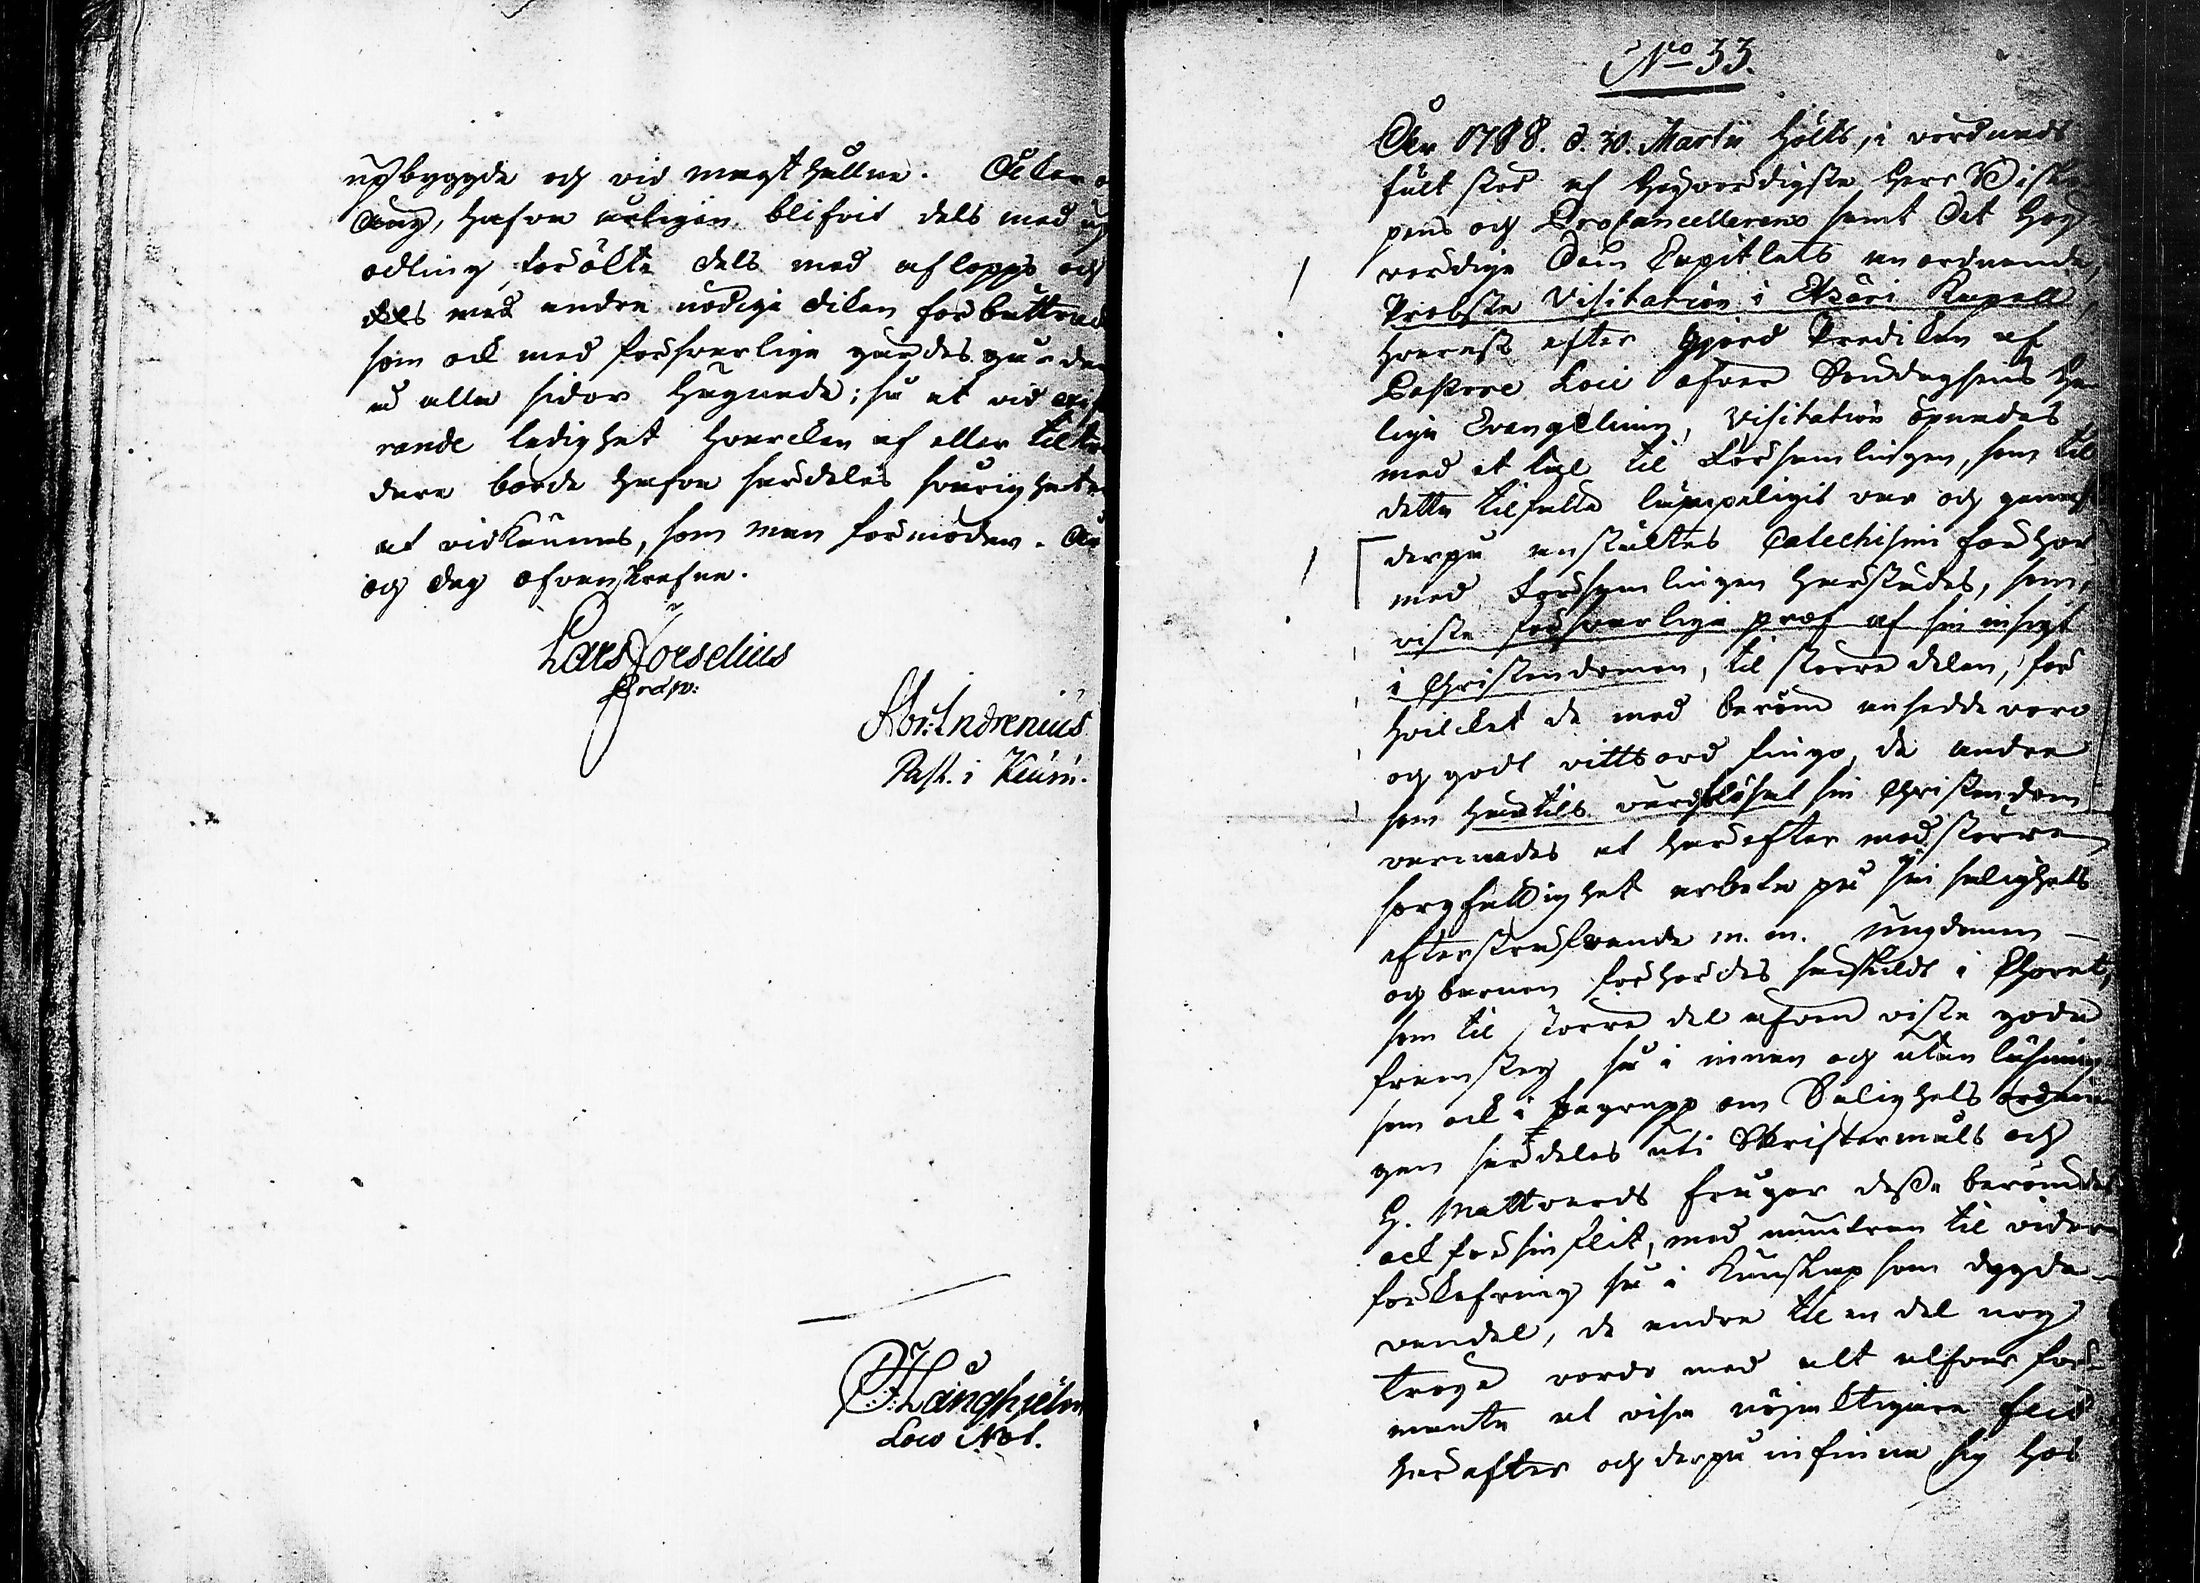 upbyggde och vid magt hållne. Åker o
Äng, hafva årligen blifvit dels med up
odling förökte dels med aflopps och
dels med andra nödige diken förbättrade
som ock med försvarlige gärdes gårdar
å alla sidor hägnade; så at vid exi
rande ledighet hvarcken af eller tilträ
dare borde hafva särdeles svårigheter
at vidkännas, som man förmodar. År
och dag ofvanskrefne.
Lars Forselius
Præp:
Abr: Indrenius
Past. i Keuru.
Långhjelm
Loco Not.
No 33.
År 1788. d. 30. Martii hölts, i vördnads
fult stöd af Högvördigste Herr Bisko
pens och Procancellerens samt det Hög
vördige Dom Capitlets anordnande,
Probste Visitation i Etzäri Kapell,
hvarest efter gjord Predikan af
Pastore Loci öfver Söndagsens He
lige Evangelium, Visitation öpnades
med et tal til Församlingen, som til
detta tilfälle lämpeligit var och genast
derpå anstältes Catechismi förhör
med Församlingen härstädes, som,
viste försvarlige prof af sin insigt
i Christendomen, til större delen, för
hvilcket de med beröm ansedde voro
och godt vittsord fingo, de andre
som härtils vårdslösat sin Christendom
varnades at härefter med större
sorgfällighet arbeta på sin salighets
efterstræfvande m. m. Ungdomen
och barnen förhördes särskildt i Choret,
som til större del äfven viste goda
framsteg så i innan och utan läsning
som ock i begrepp om Salighets ordnin
gen särdeles uti Skriftermåls och
H. Nattvards frågor desse berömdes
ock för sin flit, med muntran til vidare
förkofring så i Kunskap som dygde
vandel, de andre til en del nog
tröge vordo med alt alfvar för
mante at visa nöjaktigare flit
härefter och derpå infinna sig hos